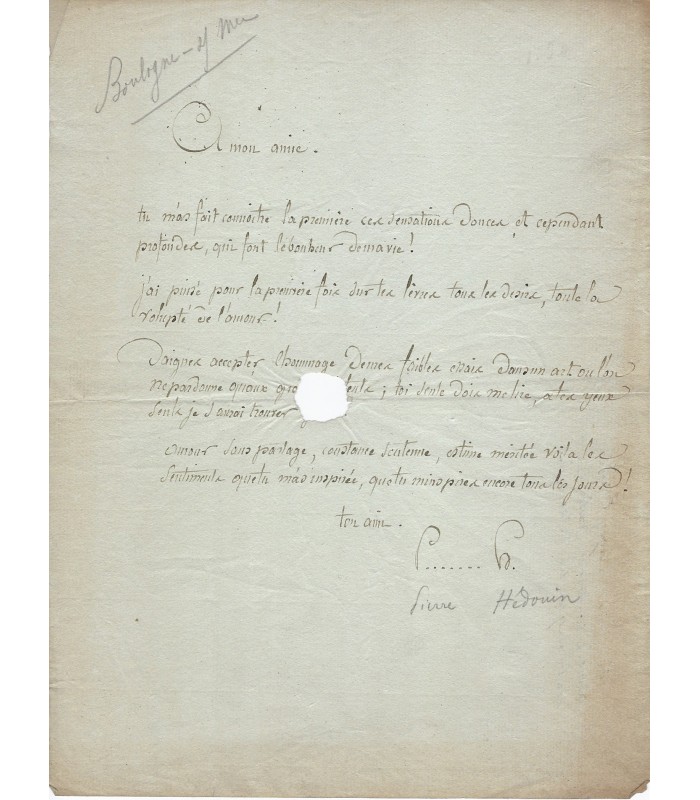 Boulogne-s/ Mer
A mon amie.
tu m'as fait connoitre la premiere ces sensations douces et cependant
profondes, qui font le bonheur de ma vie!
j'ai puisé pour la premiere fois sur tes lèvres tous les desirs, toute la
volupté de l'amour!
Daignes accepter l'hommage de mes foibles essais dans un art où l'on
ne pardonne qu'aux ; toi seule dois me lire, a tes yeux
seuls je saurai trouver
amour sans partage, constance soutenue, estime meritée voila les
sentiments que tu m'as inspirés, que tu m'inspires encore tous les jours!
ton ami.
P....... H.
Pierre Hédouin